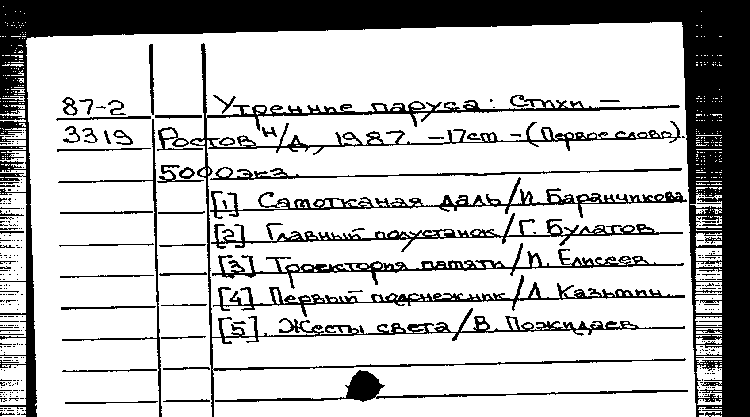 87-2 Утренние паруса: Стихи. —
3319 Ростов н/Д, 1987. —17см —(Первое слово).
5000экз.
[1] Самотканая даль/И. Баранчикова
[2] Главный полустанок/Г. Булатов
[3] Троектория памяти/И. Елисеев.
[4] Первый подснежник/Л. Казьмин.
[5]. Жесты света/В. Пожидаев